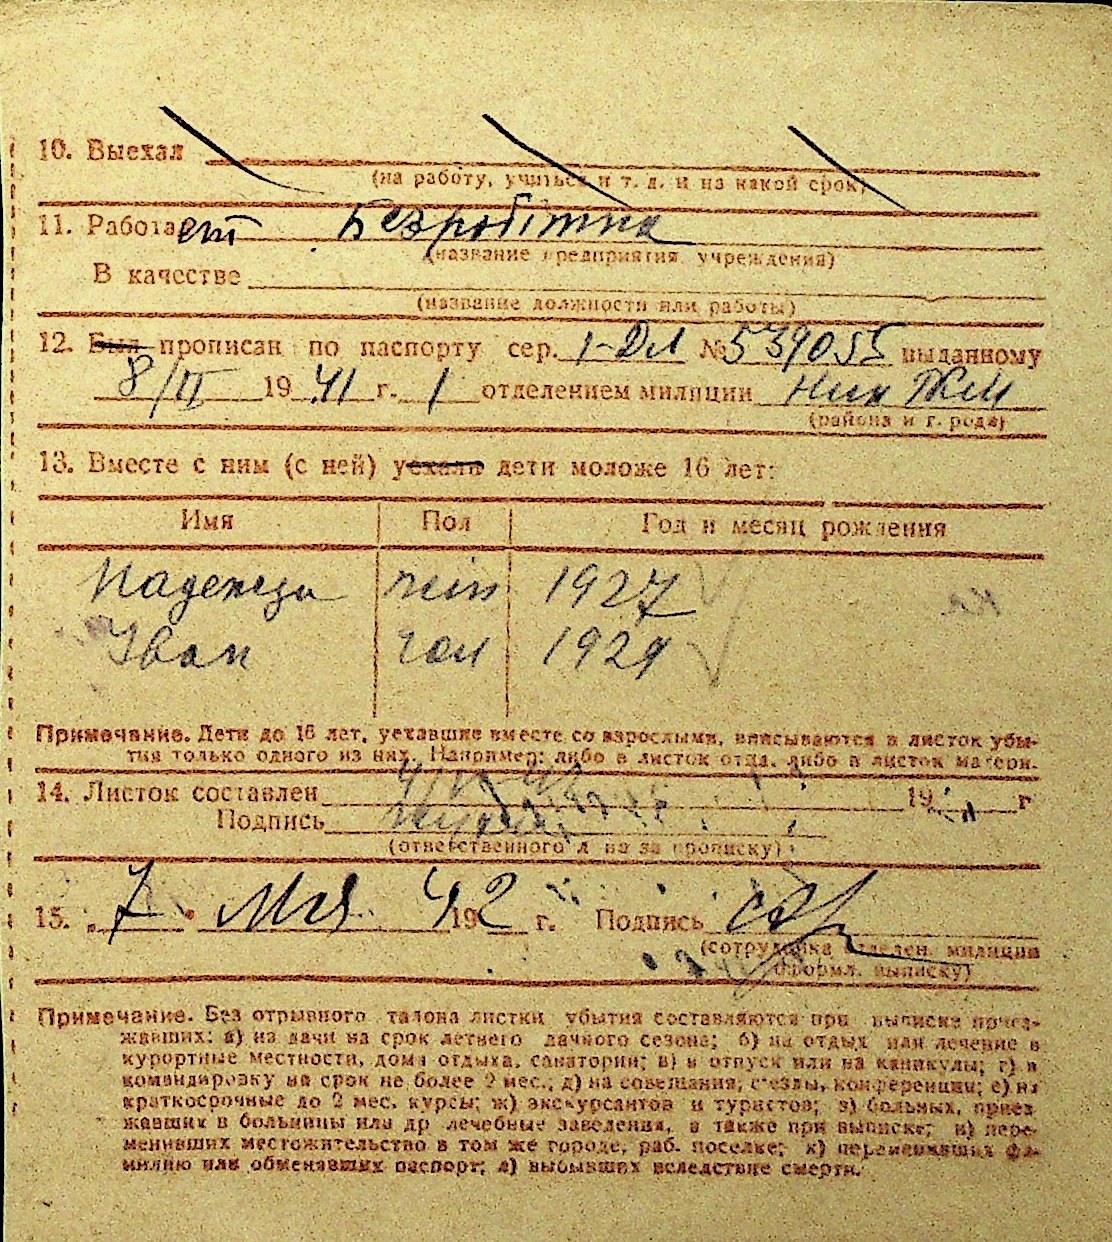 10. Выехал
(на работу, учиться и т. д. и на какой срок)
11. Работает Безробітна
(название предприятия, учреждения)
В качестве
(название должности или работы)
12. Был прописан по паспорту сер. 1-ДЛ № 539055 выданному
8/II 1941 г. 1 отделением милиции
(района и города)
13. Вместе с ним (с ней) уехали дети моложе 16 лет:
Имя Пол Год и месяц рождения
Надежда 1927
Іван 1929
Примечание. Дети до 16 лет, уехавшие вместе со взрослыми, вписываются в листок убы-
тия только одного из них. Например: либо в листок отца, либо в листок матери.
14. Листок составлен 19 г
Подпись
(ответственного л на за прописку)
15. „7" Мая 4192 г. Подпись
(сотрудника отделен. милиции
оформл. выписку)
Примечание. Без отрывного талона листки убытия составляются при выписке приез-
жавших: а) из дачи на срок летнего дачного сезона; б) на отдых или лечение в
курортные местности, дома отдыха, санатории; в) в отпуск или на каникулы; г) в
командировку на срок не более 2 мес.; д) на совещания, съезды, конференции; е) на
краткосрочные до 2 мес. курсы; ж) экскурсантов и туристов; з) больных, приез-
жавших в больницы или др лечебные заведения, а также при выписке; и) пере-
менивших местожительство в том же городе, раб. поселке; к) переменивших фа-
милию или обменявших паспорт; л) выбывших вследствие смерти.